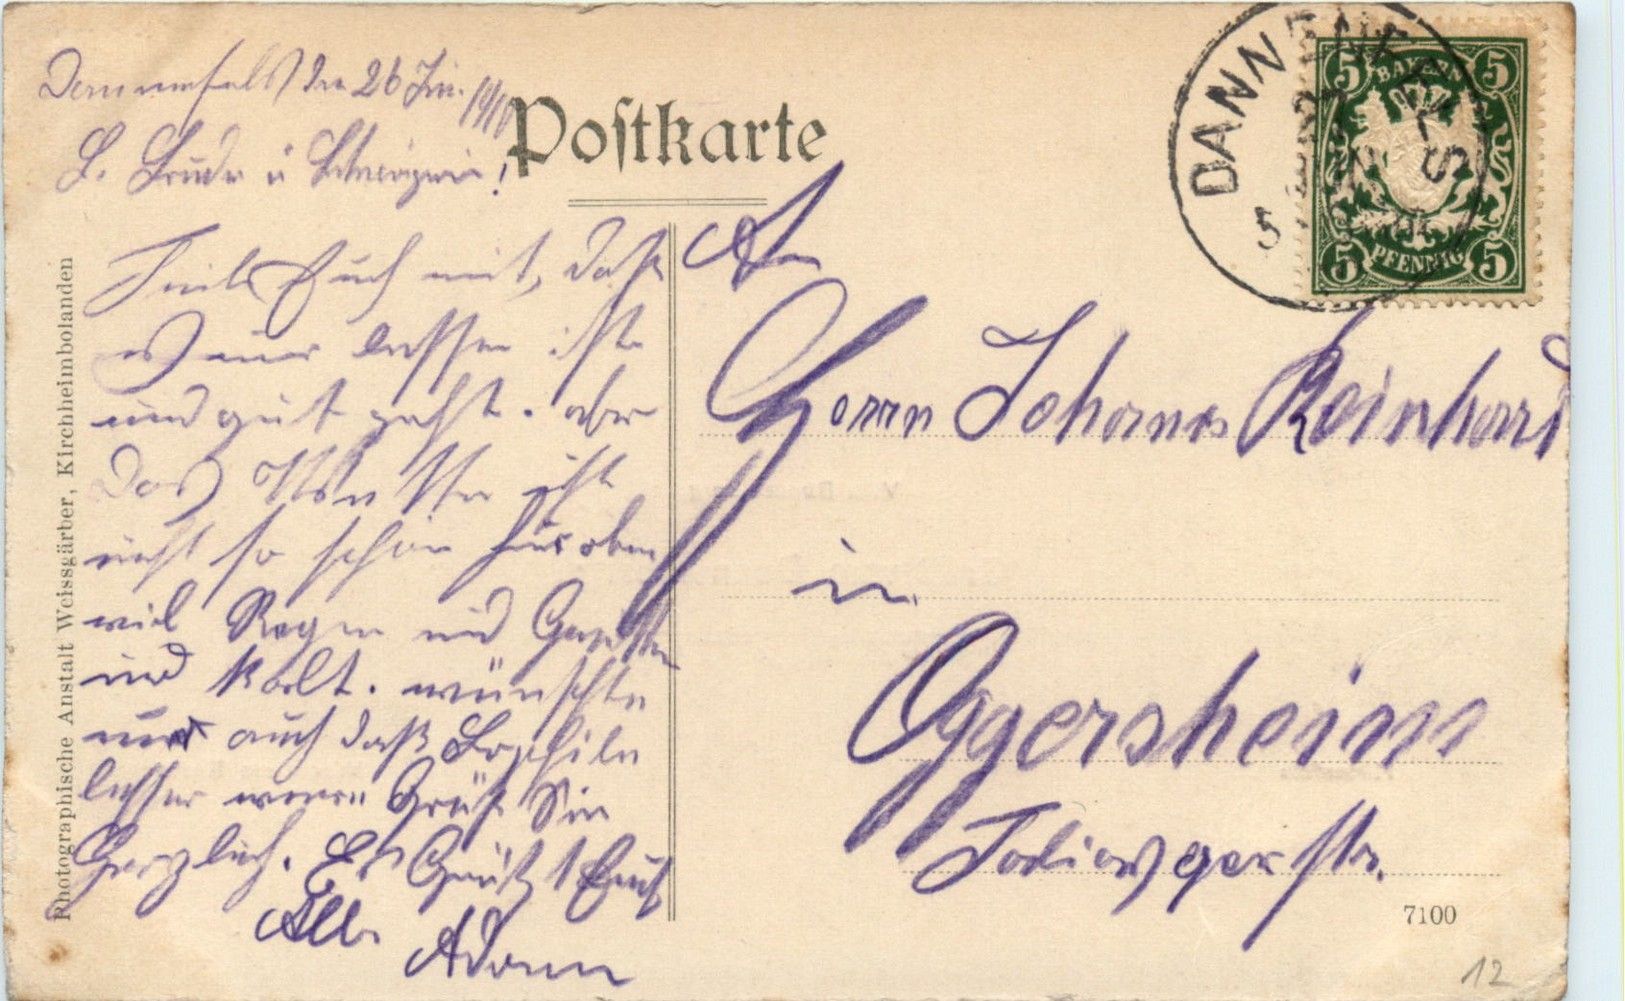 Dannenfels den 26 Jun. 1910
L. Bruder u Schwägerin!
Teile Euch mit, daß
es mir besser ist
und gut geht. aber
das Wetter ist
nicht so schön hier oben
viel Regen und Gewitter
und kalt. wünschte
nur auch daß
besser wäre Grüße Sie
Herzlich. Es Grüßt Euch
All. Adam
Postkarte
An
Herrn Johannes Reinhard
in
Oggersheim
str.
7100
12
Photographische Anstalt Weissgärber, Kirchheimbolanden
DANNENFELS
5
BAYERN
5 5
5 5
PFENNIG